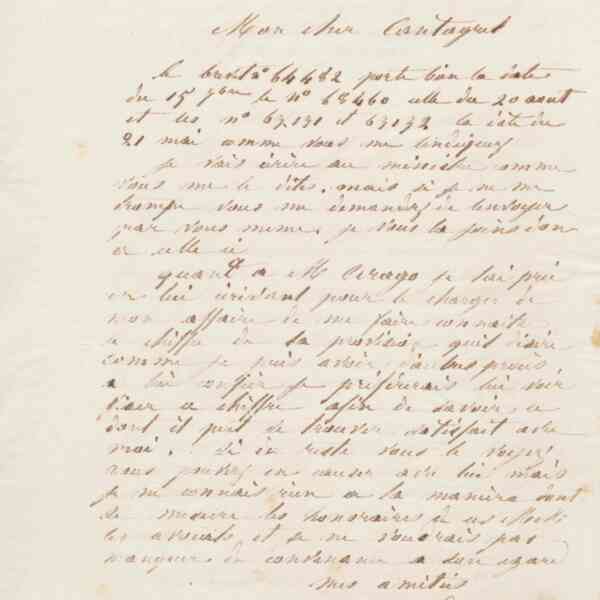 Mon cher Cantagrel
le brevet n° 64482 porte bien la date
du 15 7bre le n° 68460 celle du 20 août
et les n° 63131 et 63132 la date du
21 mai comme vous me l'indiquez
je vais écrire au ministre comme
vous me le dites, mais si je ne me
trompe vous me demandez de l'envoyer
par vous même, je vous la joins donc
à celle ci
quant à Mr Arago je l'ai prié
en lui écrivant pour le charger de
mon affaire de me faire connaître
le chiffre de la provision qu'il désire
comme je puis avoir d'autres procès
à lui confier je préférerais lui voir
fixer ce chiffre afin de savoir ce
dont il peut se trouver satisfait avec
moi. Si du reste vous le voyez
vous pouvez en causer avec lui mais
je ne connais rien à la manière dont
se mesure les honoraires de ces Mrs
les avocats et je ne voudrais pas
manquer de convenance à son égard
mes amitiés